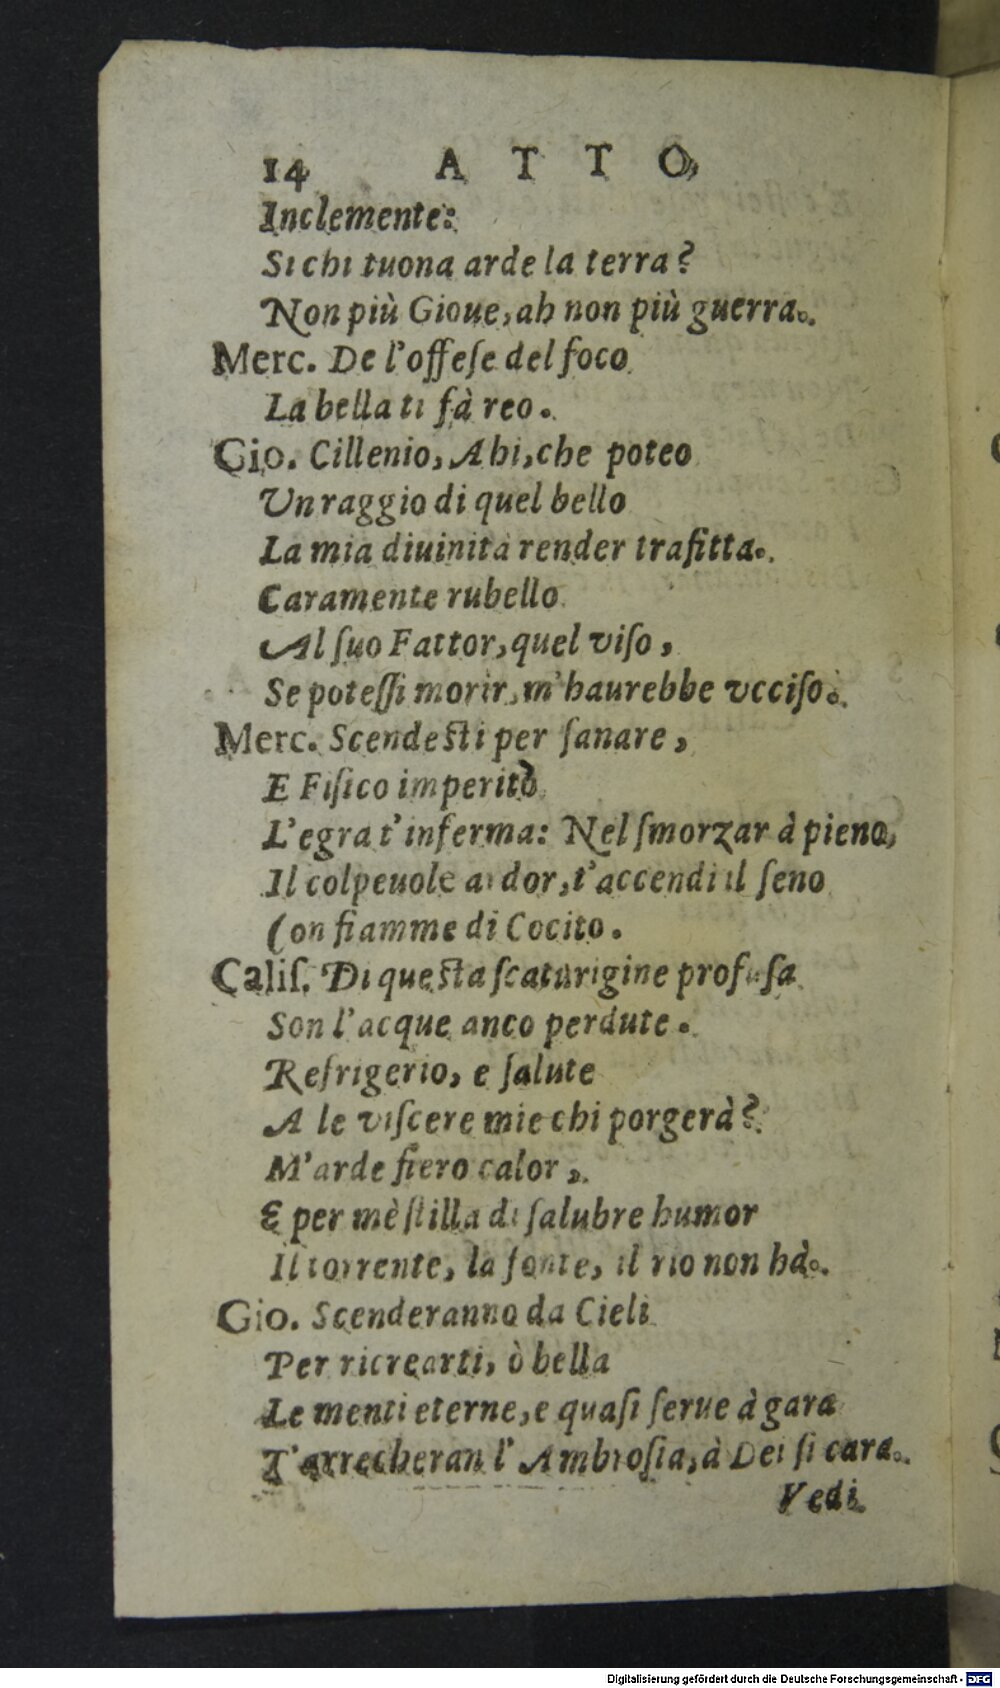 14 ATTO
Inclemente:
Si chi tuona arde la terra?
Non più Gioue, ah non più guerra.
Merc. De l'offeſe del foco
La bella ti fà reo.
Gio. Cillenio, Ahi, che poteo
Un raggio di quel bello
La mia diuinità render trafitta.
Caramente rubello
Al ſuo Fattor, quel viſo,
Se poteſſi morir, m'haurebbe vcciſo.
Merc. Scendeſti per ſanare,
E Fiſico imperito
L'egra t'inferma: Nel ſmorzar à pieno,
Il colpeuole ardor, t'accendi il ſeno
Con fiamme di Cocito.
Caliſ. Di queſta ſcaturigine profuſa
Son l'acque anco perdute.
Refrigerio, e ſalute
A le viſcere mie chi porgerà?
M'arde fiero calor,
E per mè ſtilla di ſalubre humor
Il torrente, la fonte, il rio non hà.
Gio. Scenderanno da Cieli
Per ricrearti, ò bella
Le menti eterne, e quaſi ſerue à gara
T'arrecheran l'Ambroſia, à Dei ſi cara.
Vedi
Digitalisierung gefördert durch die Deutsche Forschungsgemeinschaft - DFG